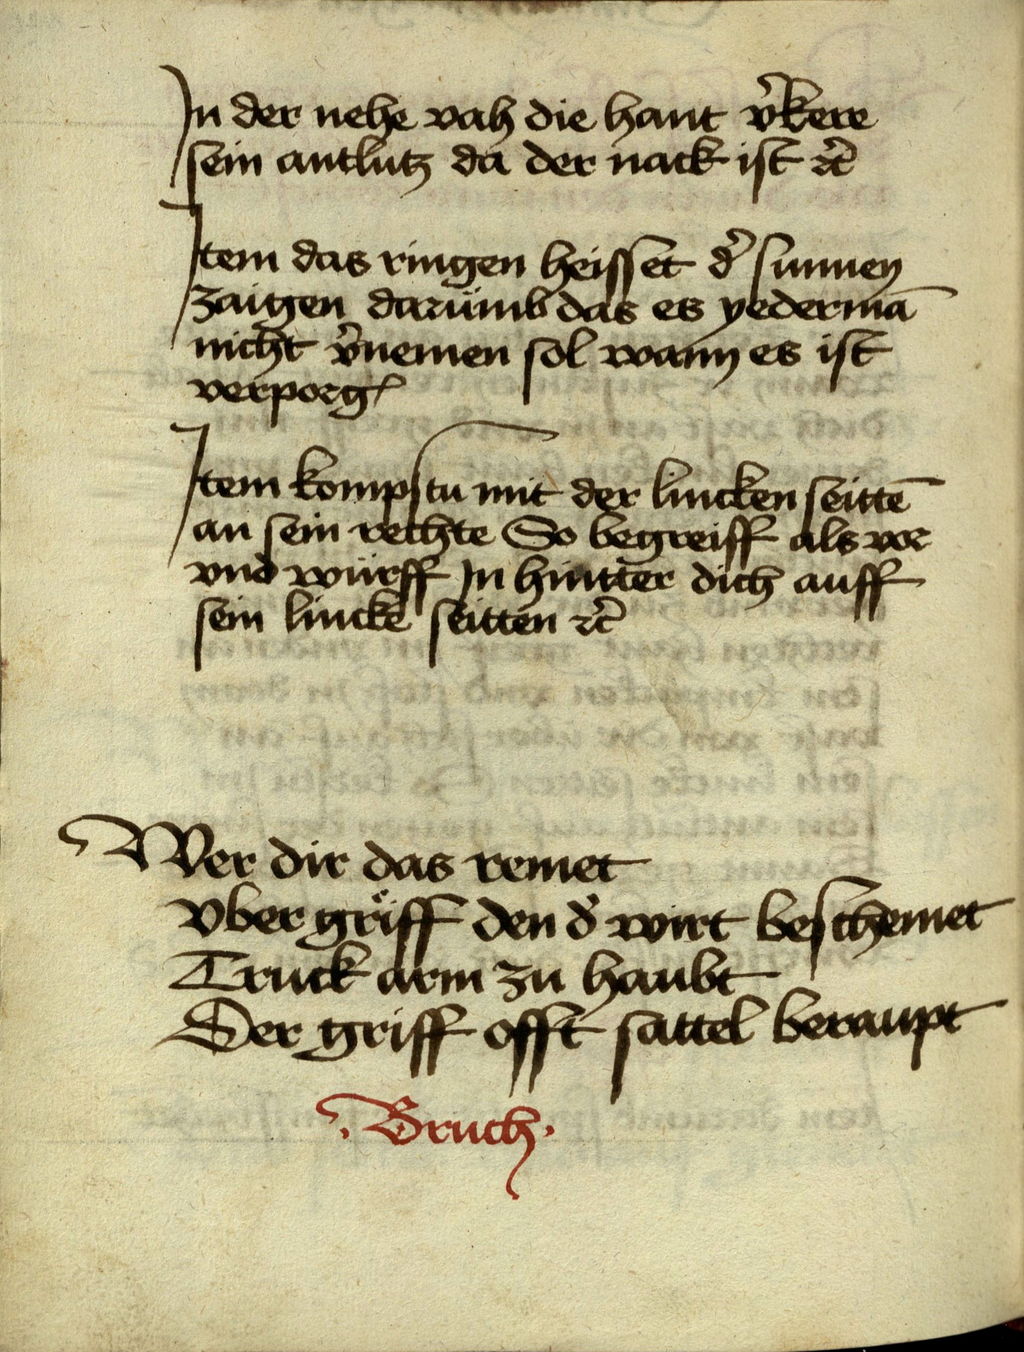 In der nehe vah die hant v̉kere
sein antlutz da der nack ist ꝛc̉
Item das ringen heisset d̉ sunnen
zaigen darümb das es yedermā
nicht v̉nemen sol wann es ist
verporgꝭ
Item kompstu mit der lincken seittē
an sein rechte So begreiff als vor
vnd würff In hinttter dich auff
sein lincke seitten ꝛc̉
Wer dir das remet
Vber griff den d̉ wirt beschemet
Truck arm zu haubt
Der griff offt sattel beraupt
·Bruch·